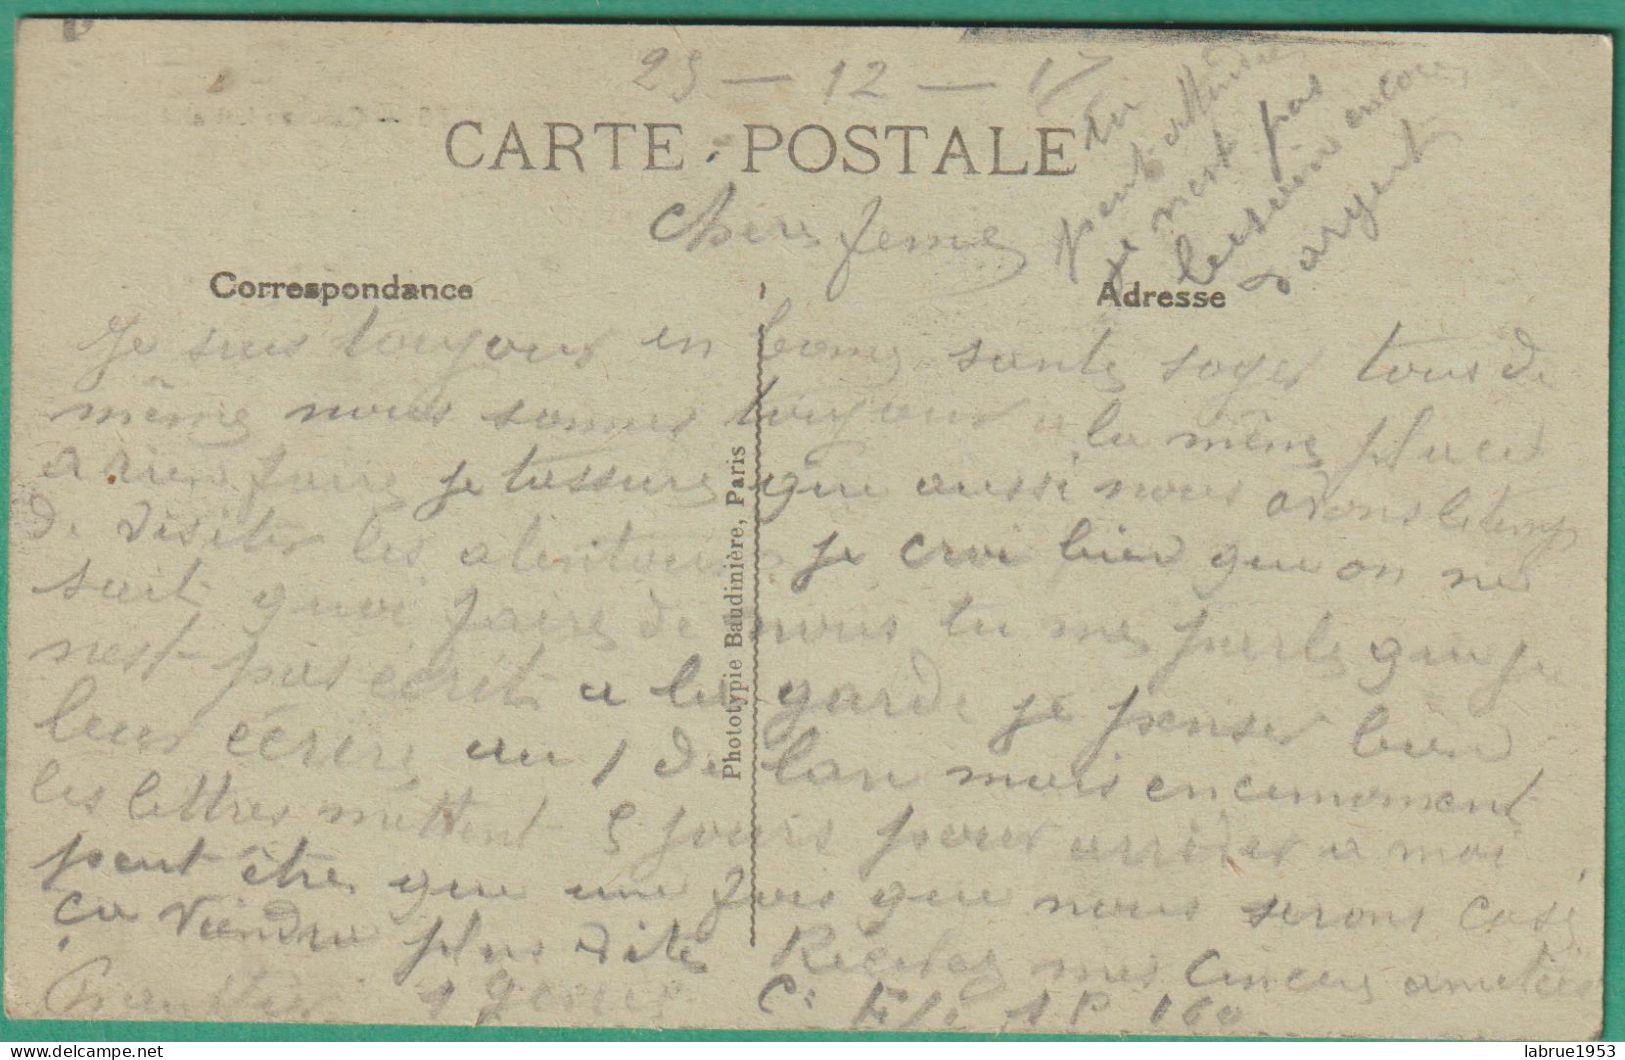 23 - 12 - 17
CARTE POSTALE
tu
peut attendre
je nest pas
besoin encore
d argent
Chere feme
Correspondance
Adresse
Je suis toujour en bone sante soyer tous de
même nous somme toujour a la même place
a rien faire je tassure que aussi nous avons le temp
de visiter les alentour je croi bien que on ne
sait quoi faire de nous tu me parle que je
nest pas écrit a la garde je penser bien
leur écrire au 1 de lan mais en cemoment
les lettres mettent 5 jours pour arriver a moi
peut être que une fois que nous serons casé
ca viendra plus vite Recevez mes cincere amitiés
Phototypie Baudinière, Paris
SP 160
labrue1953